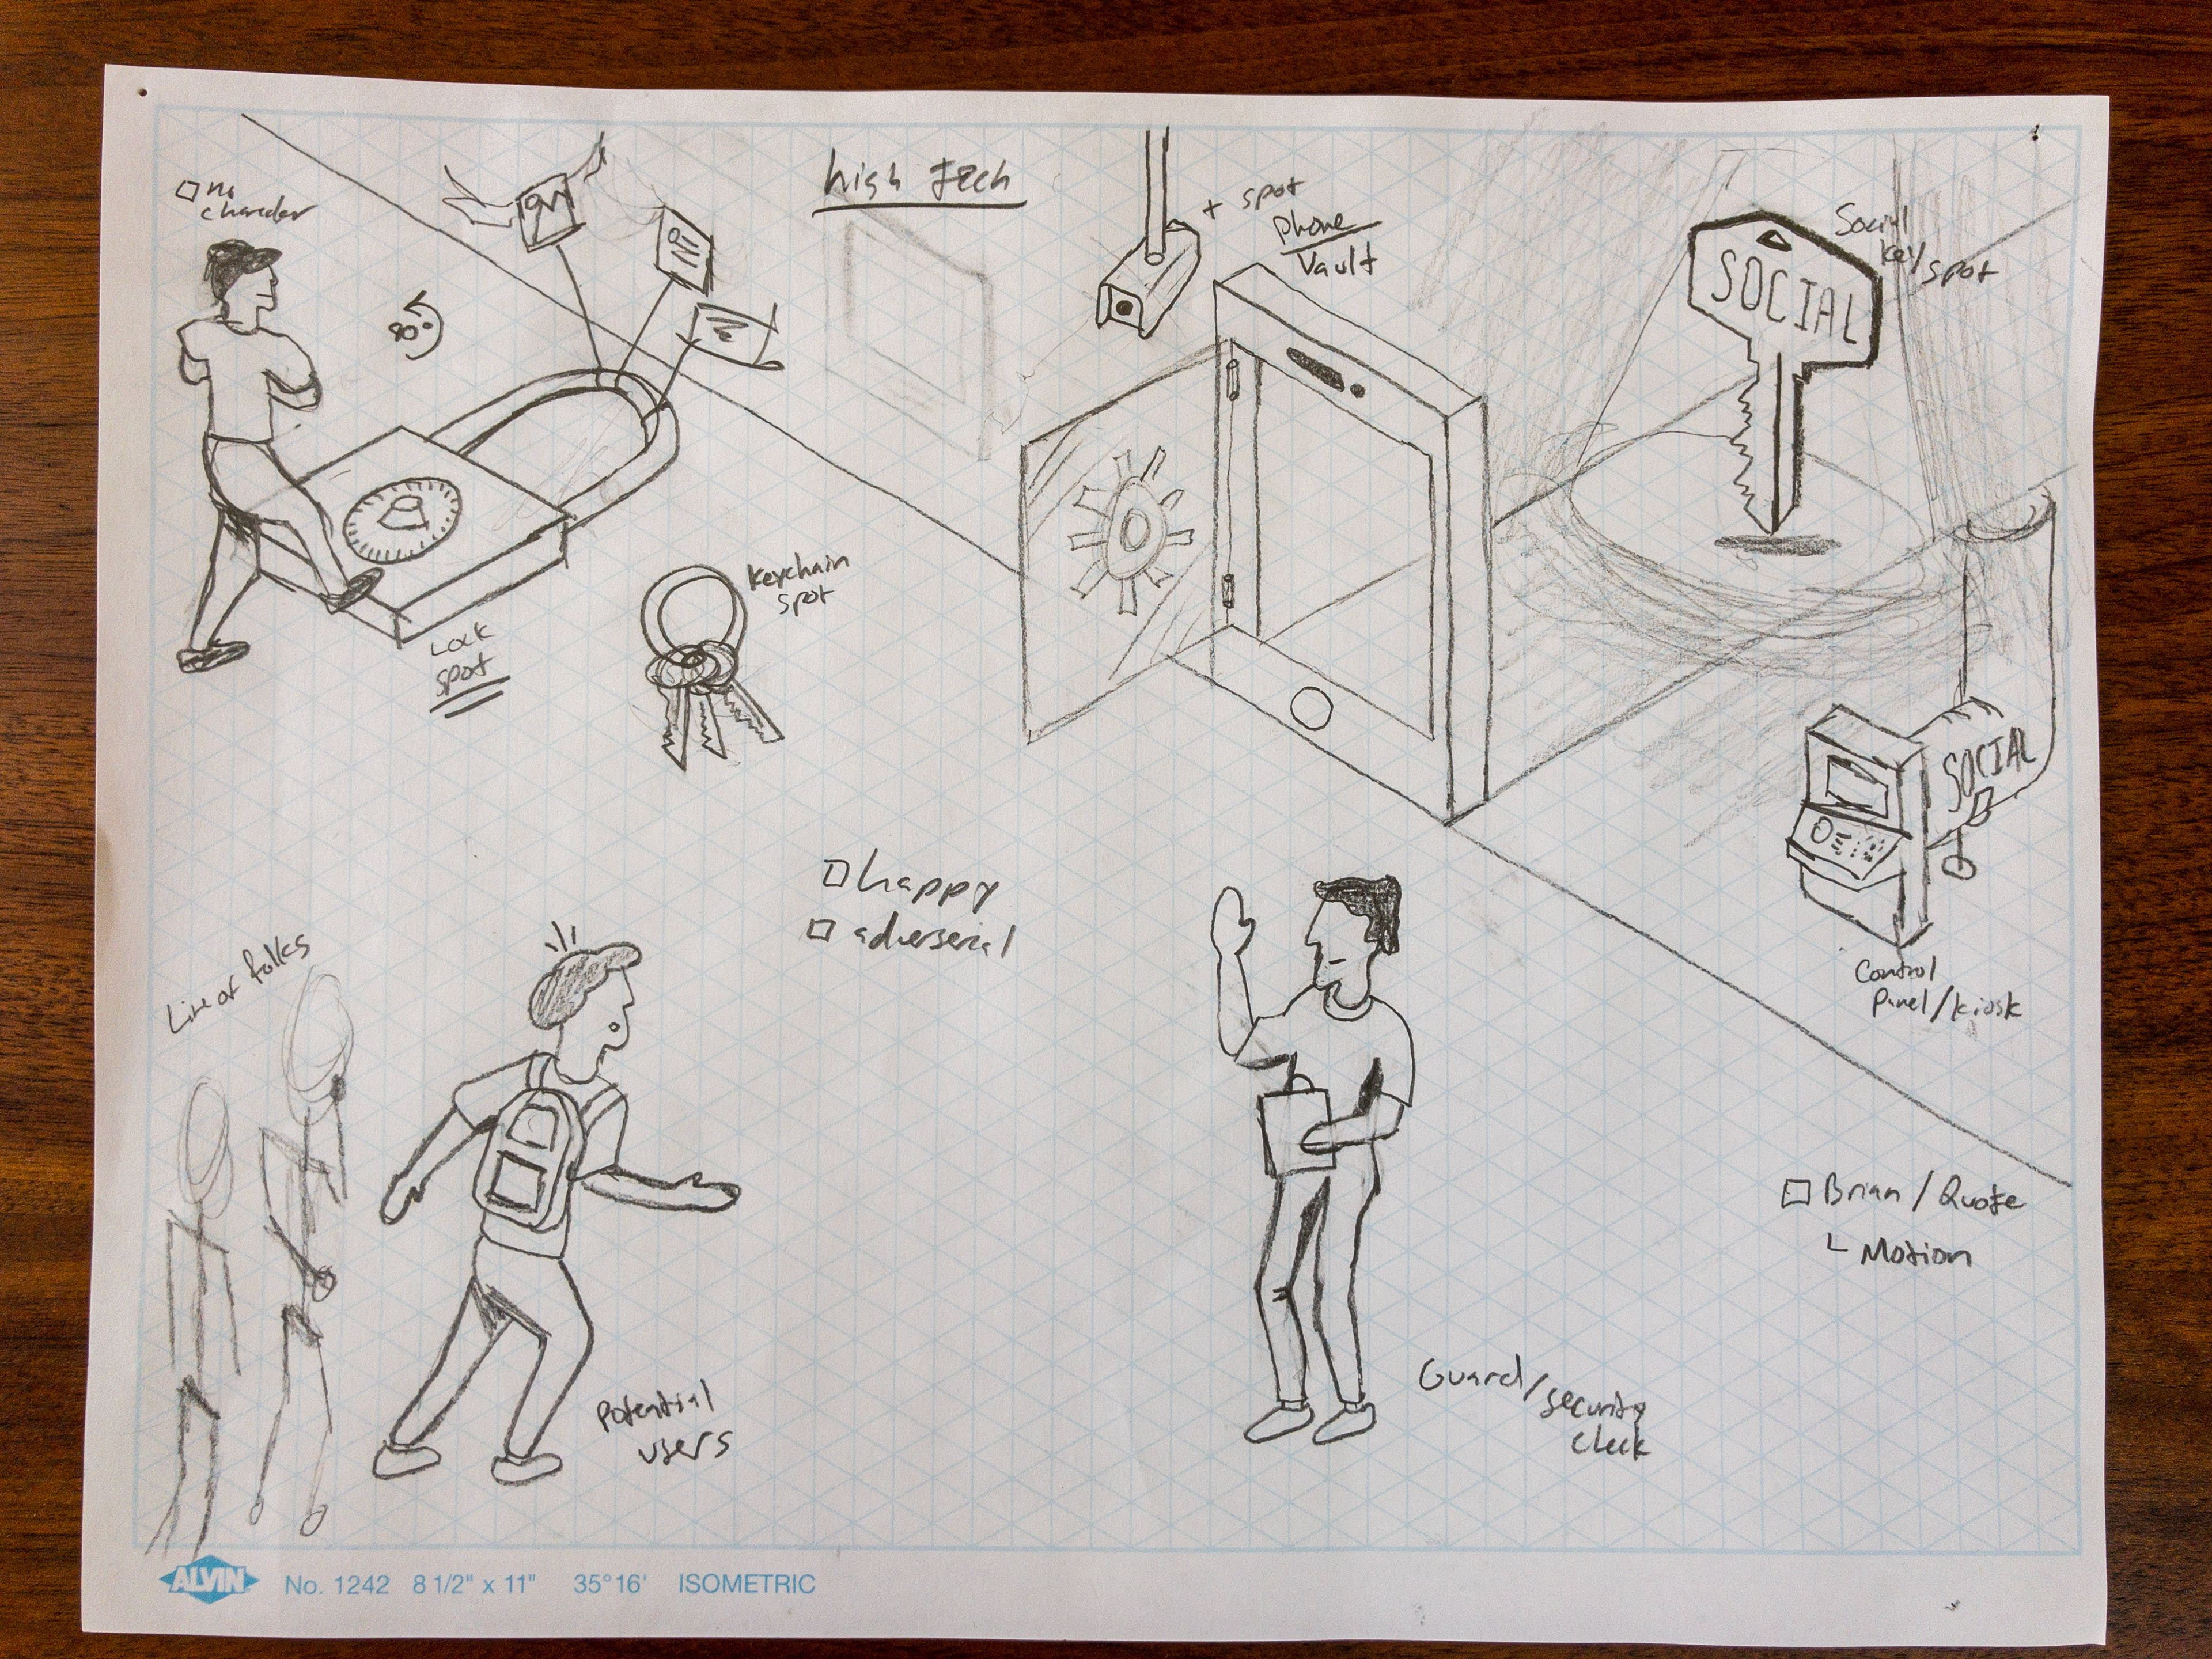 high Tech
no
+ spot
Phone
Vault
Social
key spot
SOCIAL
80°
keychain
spot
Lock
spot
SOCIAL
happy
adverserial
Line of folks
Control
Panel/kiosk
Brian/Quote
Motion
Potential
users
Guard/security
check
ALVIN No. 1242 8 1/2" x 11" 35°16' ISOMETRIC